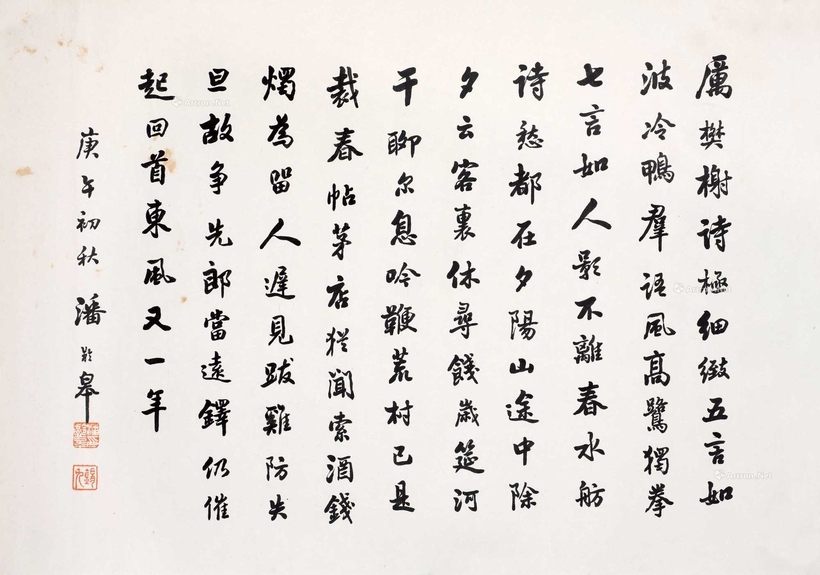 厲樊榭詩極細緻五言如
波冷鴨羣語風高鷺獨拳
七言如人影不離春水舫
詩愁都在夕陽山途中除
夕云客裏休尋餞歲筵河
干聊尔息吟鞭荒村已是
裁春帖茅店猶聞索酒錢
燭為留人遲見跋雞防失
旦故争先郎當遠鐸仍催
起回首東風又一年
庚午初秋潘齡皋